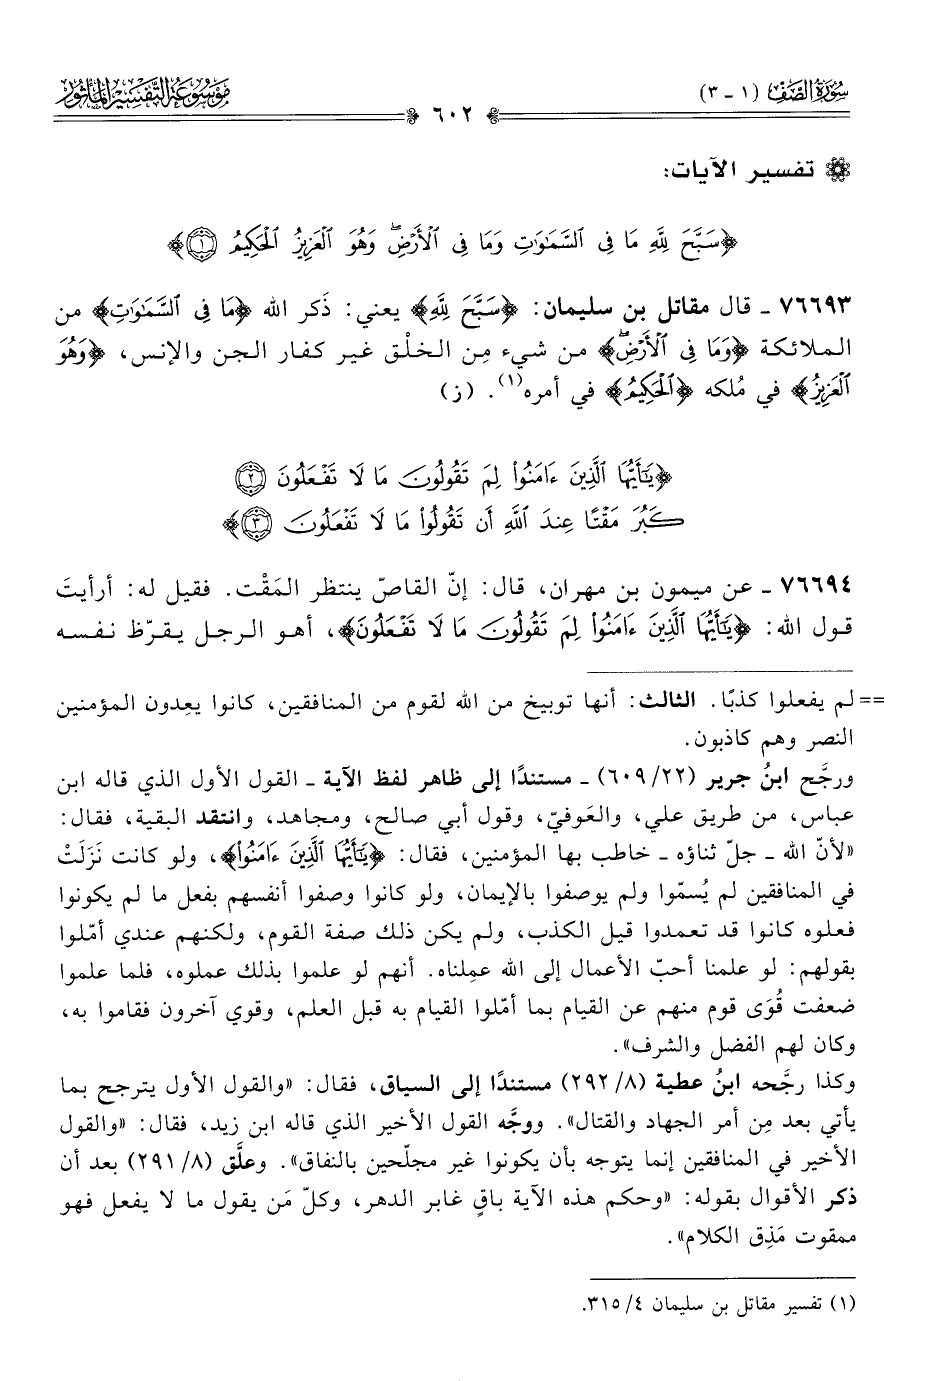 سُورَةُ الصَّفِّ (١ - ٣)
٦٠٢
مَوْسُوعَةُ التَّفْسِيرِ المَأْثُورِ
تفسير الآيات:
﴿سَبَّحَ لِلَّهِ مَا فِى ٱلسَّمَٰوَٰتِ وَمَا فِى ٱلْأَرْضِۖ وَهُوَ ٱلْعَزِيزُ ٱلْحَكِيمُ ١﴾
٧٦٦٩٣ - قال مقاتل بن سليمان: ﴿سَبَّحَ لِلَّهِ﴾ يعني: ذَكر الله ﴿مَا فِى ٱلسَّمَٰوَٰتِ﴾ من
الملائكة ﴿وَمَا فِى ٱلْأَرْضِۖ﴾ من شيء مِن الخلْق غير كفار الجن والإنس، ﴿وَهُوَ
ٱلْعَزِيزُ﴾ في مُلكه ﴿ٱلْحَكِيمُ﴾ في أمره(١). (ز)
﴿يَٰٓأَيُّهَا ٱلَّذِينَ ءَامَنُوا۟ لِمَ تَقُولُونَ مَا لَا تَفْعَلُونَ ٢
كَبُرَ مَقْتًا عِندَ ٱللَّهِ أَن تَقُولُوا۟ مَا لَا تَفْعَلُونَ ٣﴾
٧٦٦٩٤ - عن ميمون بن مهران، قال: إنّ القاصّ ينتظر المَقْت. فقيل له: أرأيتَ
قول الله: ﴿يَٰٓأَيُّهَا ٱلَّذِينَ ءَامَنُوا۟ لِمَ تَقُولُونَ مَا لَا تَفْعَلُونَ﴾، أهو الرجل يقرّظ نفسه
== لم يفعلوا كذبًا. الثالث: أنها توبيخ من الله لقوم من المنافقين، كانوا يعِدون المؤمنين
النصر وهم كاذبون.
ورجَّح ابنُ جرير (٢٢/ ٦٠٩) - مستندًا إلى ظاهر لفظ الآية - القول الأول الذي قاله ابن
عباس، من طريق علي، والعَوفيّ، وقول أبي صالح، ومجاهد، وانتقد البقية، فقال:
«لأنّ الله - جلّ ثناؤه - خاطب بها المؤمنين، فقال: ﴿يَٰٓأَيُّهَا ٱلَّذِينَ ءَامَنُوا۟﴾، ولو كانت نَزَلَتْ
في المنافقين لم يُسمّوا ولم يوصفوا بالإيمان، ولو كانوا وصفوا أنفسهم بفعل ما لم يكونوا
فعلوه كانوا قد تعمدوا قيل الكذب، ولم يكن ذلك صفة القوم، ولكنهم عندي أمّلوا
بقولهم: لو علمنا أحبّ الأعمال إلى الله عمِلناه. أنهم لو علموا بذلك عملوه، فلما علموا
ضعفت قُوَى قوم منهم عن القيام بما أمّلوا القيام به قبل العلم، وقوي آخرون فقاموا به،
وكان لهم الفضل والشرف».
وكذا رجَّحه ابنُ عطية (٨/ ٢٩٢) مستندًا إلى السياق، فقال: «والقول الأول يترجح بما
يأتي بعد مِن أمر الجهاد والقتال». ووجَّه القول الأخير الذي قاله ابن زيد، فقال: «والقول
الأخير في المنافقين إنما يتوجه بأن يكونوا غير مجلّحين بالنفاق». وعلَّق (٨/ ٢٩١) بعد أن
ذكر الأقوال بقوله: «وحكم هذه الآية باقٍ غابر الدهر، وكلّ مَن يقول ما لا يفعل فهو
ممقوت مَذِق الكلام».
(١) تفسير مقاتل بن سليمان ٤/ ٣١٥.